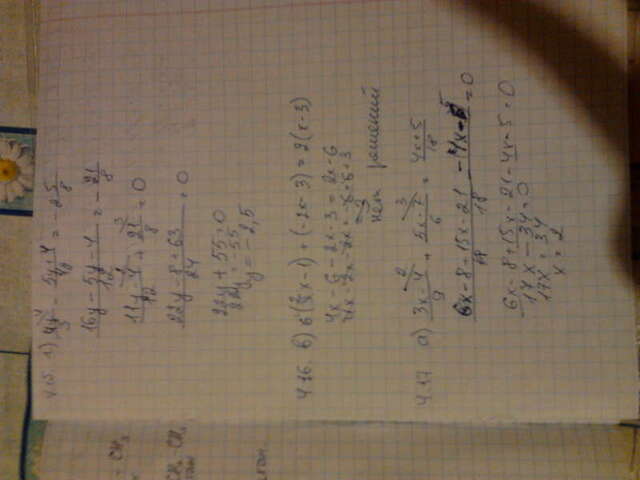 4.15 г) 4y/3 - (5y-4)/12 = -2 5/8
(16y-5y-4)/12 = -21/8
(11y-4)/12 + 21/8 = 0
(22y-8+63)/24 = 0
22y+55=0
22y=-55
y=-2,5
4.16. б) 6(2/3x-1)+(-2x-3)=2(x-3)
4x-6-2x-3=2x-6
4x-2x-2x=-6+6+3
нет решений
4.17 а) (3x-4)/9 + (5x-7)/6 = (4x+5)/18
(6x-8+15x-21)/18 - (4x-5)/18 = 0
6x-8+15x-21-4x-5=0
17x-34=0
17x=34
x=2
- CH3
CH2-CH3